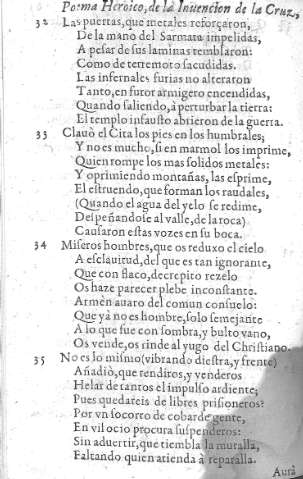 Poema Heroico, de la Inuencion de la Cruz,
32 Las puertas, que metales reforçaron,
De la mano del Sarmata impelidas,
A pesar de sus laminas temblaron:
Como de terremoto sacudidas.
Las infernales furias no alteraron
Tanto, en furor armigero encendidas,
Quando saliendo, à perturbar la tierra:
El templo infausto abrieron de la guerra.
33 Clauò el Cita los pies en los humbrales;
Y no es mucho, si en marmol los imprime,
Quien rompe los mas solidos metales:
Y oprimiendo montañas, las esprime,
El estruendo, que forman los raudales,
(Quando el agua del yelo se redime,
Despeñandose al valle, de la roca)
Causaron estas vozes en su boca.
34 Miseros hombres, que os reduxo el cielo
A esclauitud, del que es tan ignorante,
Que con flaco, decrepito rezelo
Os haze parecer plebe inconstante.
Armèn auaro del comun consuelo:
Que yà no es hombre, solo semejante
A lo que fue con sombra, y bulto vano,
Os vende, os rinde al yugo del Christiano.
35 No es lo mismo (vibrando diestra, y frente)
Añadiò, que rendiros, y venderos
Helar de tantos el impulso ardiente;
Pues quedareis de libres prisioneros?
Por vn socorro de cobarde gente,
En vil ocio procura suspenderos:
Sin aduertir, que tiembla la muralla,
Faltando quien atienda à reparalla.
Aurà